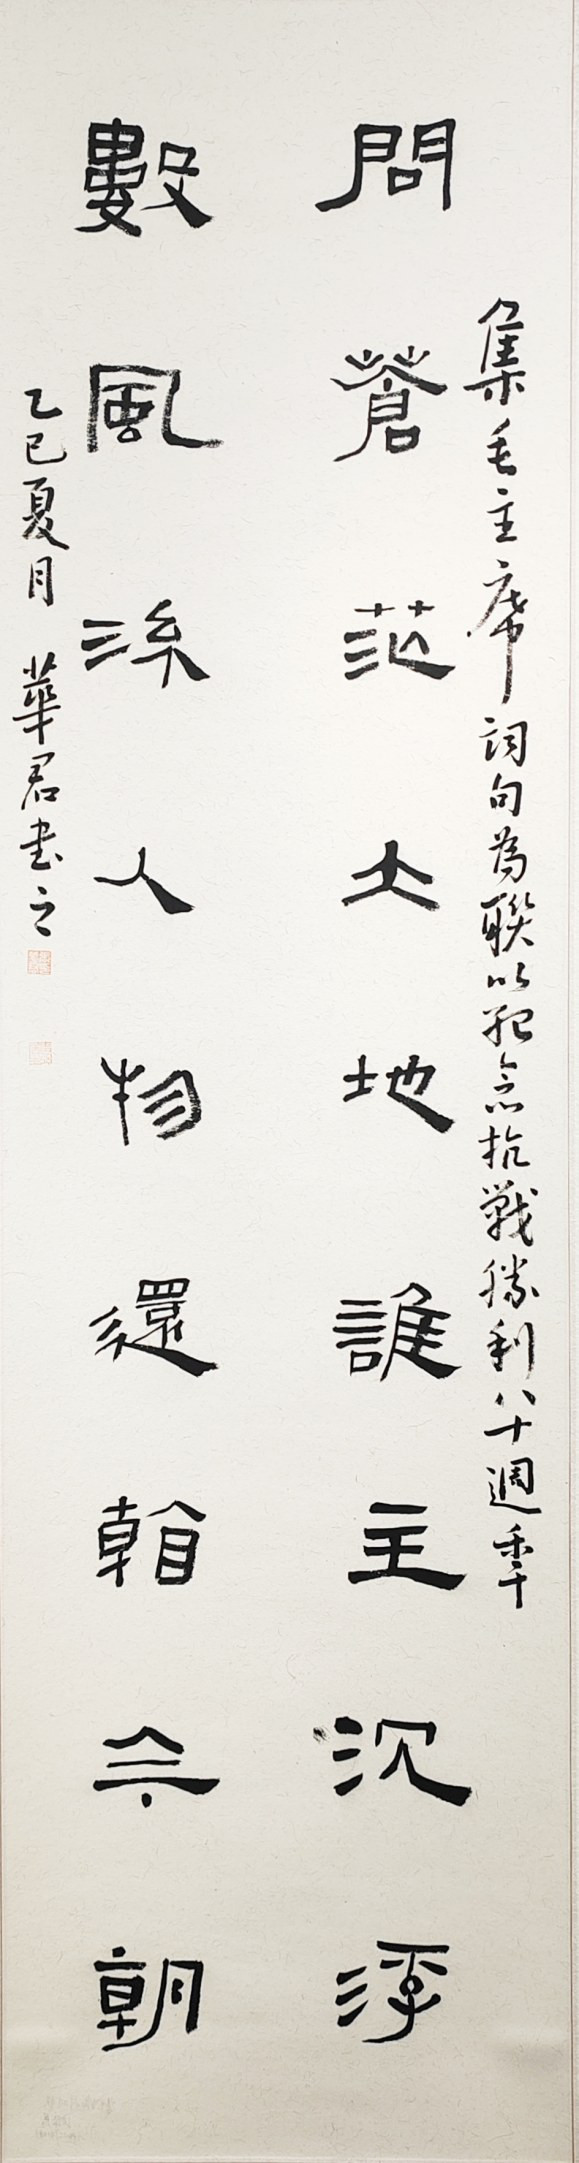 集毛主席詞句為聯以紀念抗戰勝利八十週秊
問蒼茫大地誰主沉浮
數風流人物還看今朝
乙巳夏月 華君書之